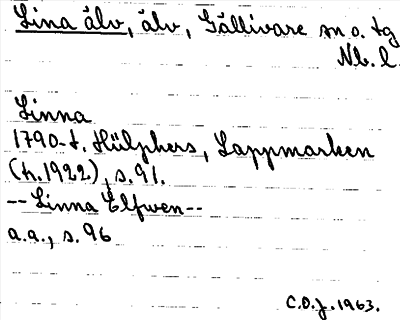 Lina älv, älv, Gällivare sn o. tg
Nb. l.
Linna
1790-t. Hülphers, Lappmarken
(h.1922), s.91.
--Linna Elfwen--
a.a., s. 96
C.O.J. 1963.